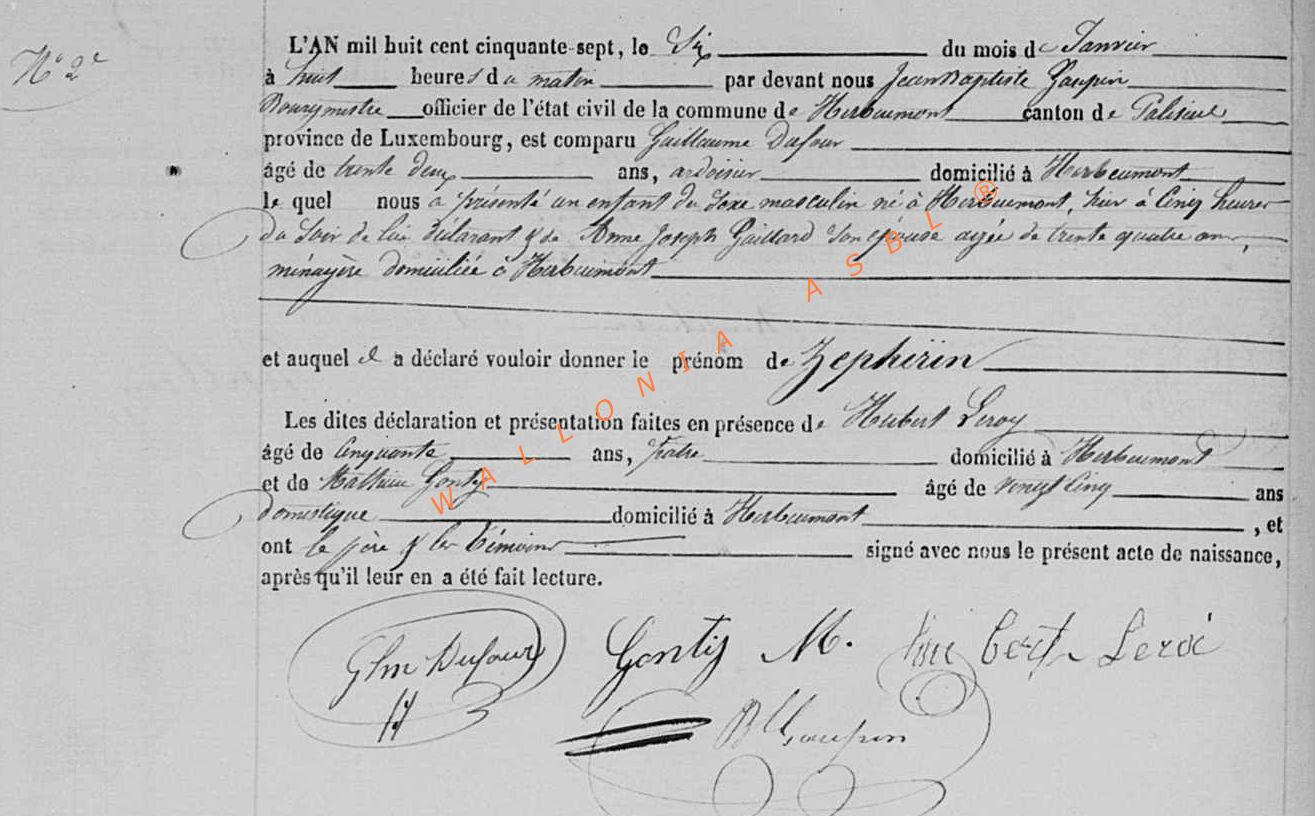 N° 2e
L'AN mil huit cent cinquante-sept, le Six du mois de Janvier
à huit heures du matin par devant nous Jean Baptiste Gaupin
Bourgmestre officier de l'état civil de la commune de Herbeumont canton de Paliseul
province de Luxembourg, est comparu Guillaume Dufour
âgé de trente deux ans, ardoisier domicilié à Herbeumont
le quel nous a présenté un enfant du Sexe masculin né à Herbeumont, hier à Cinq heures
du Soir de lui déclarant & de Anne Joseph Gaillard Son épouse agée de trente quatre ans,
ménagère domiciliée à Herbeumont
et auquel il a déclaré vouloir donner le prénom de Zephirin
Les dites déclaration et présentation faites en présence de Hubert Leroy
âgé de Cinquante ans, domicilié à Herbeumont
et de Mathieu Gontÿ âgé de vingt Cinq ans
domestique domicilié à Herbeumont, et
ont le père & les témoins signé avec nous le présent acte de naissance,
après qu'il leur en a été fait lecture.
Glm Dufour Gontÿ M. Leroi
Gaupin
WALLONIA ASBL ®